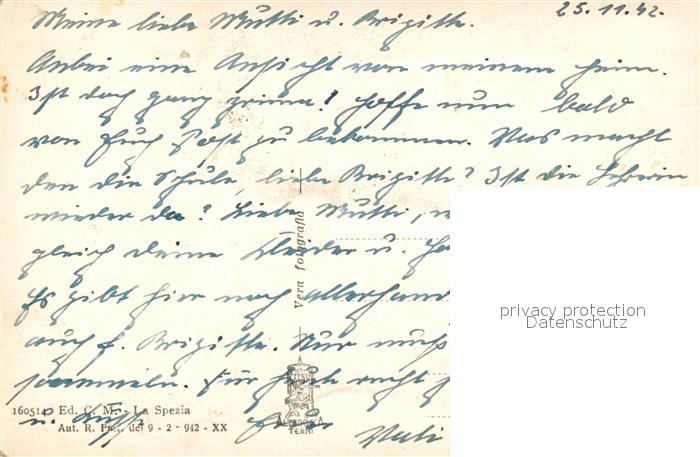 25.11.42.
Meine liebe Mutti u. Brigitte.
Anbei eine Ansicht von meinem Heim.
Ist doch ganz prima! Hoffe nun bald
von Euch Post zu bekommen. Was macht
den die Schule, liebe Brigitte? Ist die Lehrerin
wieder da? Liebe Mutti,
gleich deine Kleider u.
Es gibt hier noch allerhand
auch f. Brigitte. Nur muß
sammeln. Für heute recht
u. Küsse Euer
Vati
Vera fotografia
160514 Ed. C. M. - La Spezia
Aut. R. Pref. del 9 - 2 - 942 - XX
TERNI
privacy protection
Datenschutz